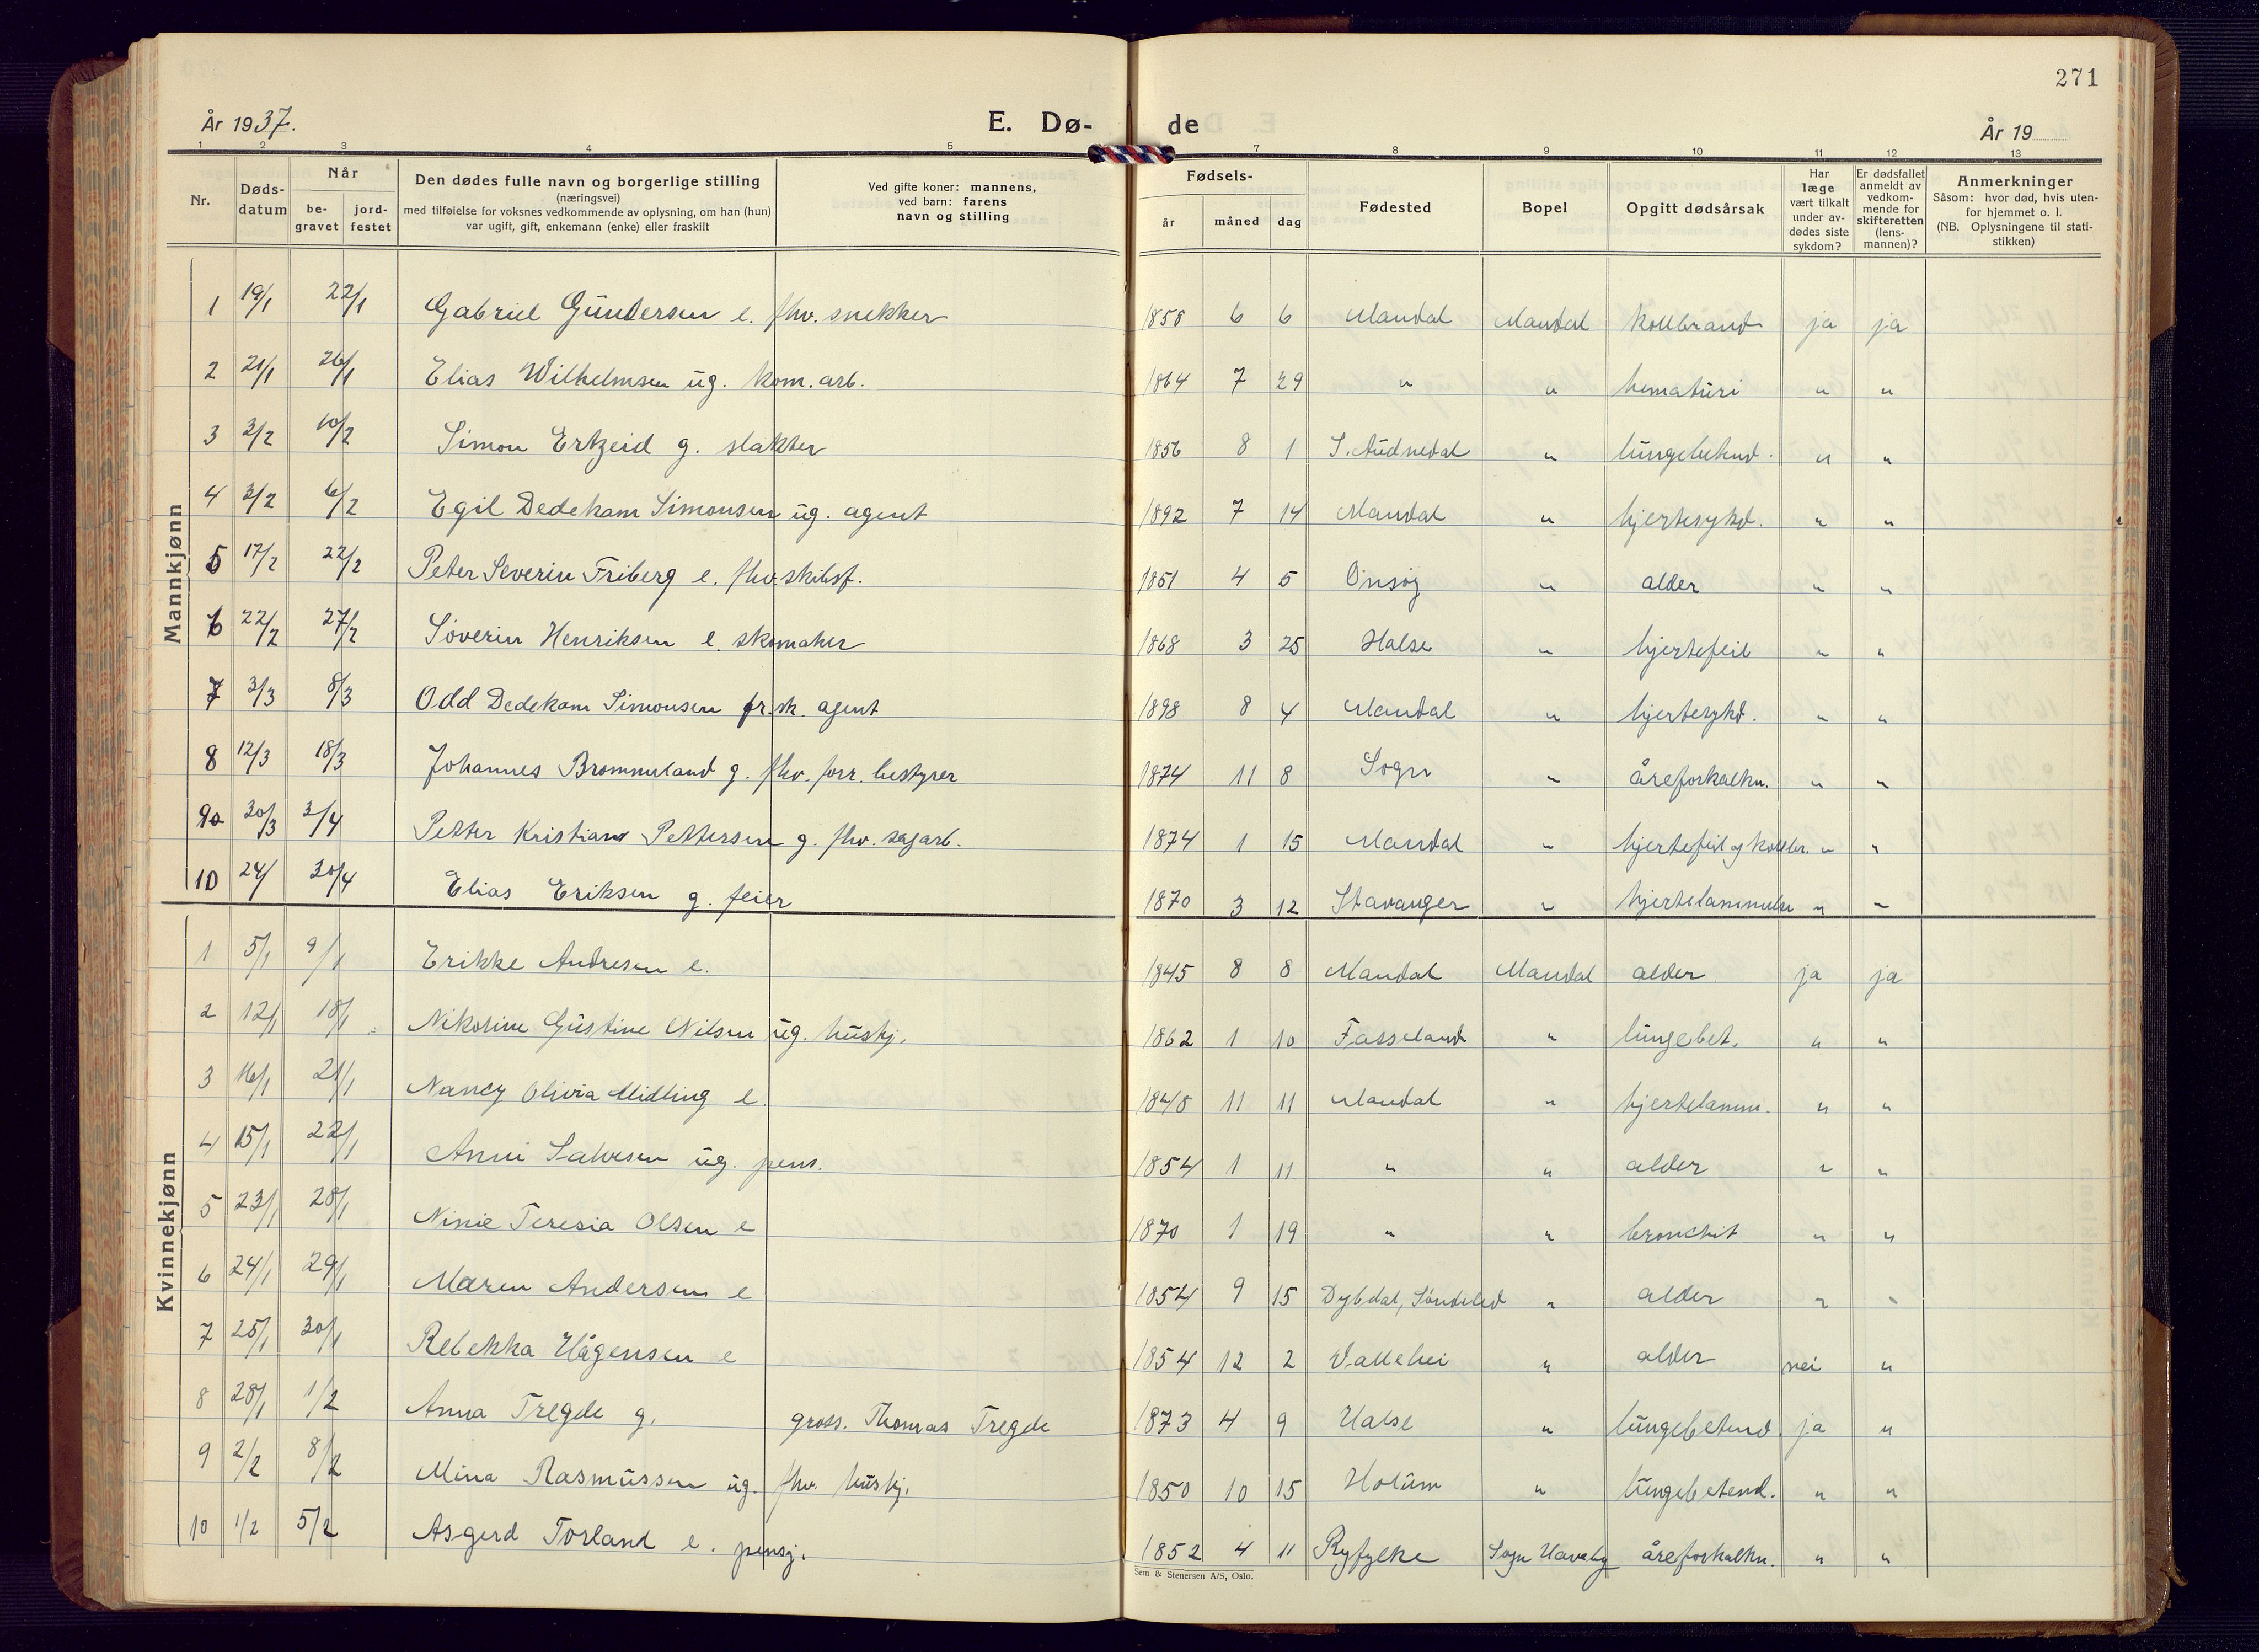 271
År 1937. E. Dø- de År 19
1 2 3 4 5 7 8 9 10 11 12 13
Nr. Døds-datum Når be-gravet jord-festet Den dødes fulle navn og borgerlige stilling (næringsvei) med tilføielse for voksnes vedkommende av oplysning, om han (hun) var ugift, gift, enkemann (enke) eller fraskilt Ved gifte koner: mannens, ved barn: farens navn og stilling Fødsels- år måned dag Fødested Bopel Opgitt dødsårsak Har læge vært tilkalt under av-dødes siste sykdom? Er dødsfallet anmeldt av vedkom-mende for skifteretten (lens-mannen)? Anmerkninger Såsom: hvor død, hvis uten-for hjemmet o. l. (NB. Oplysningene til stati-stikken)
Mannkjønn
1 19/1 22/1 Gabriel Gundersen e. fhv. snekker 1858 6 6 Mandal Mandal koldbrand ja ja
2 21/1 26/1 Elias Wilhelmsen ug. kom. arb. 1864 7 29 " " hematuri " "
3 3/2 10/2 Simon Ertzeid g. slakter 1856 8 1 S. Audnedal " lungebetend. " "
4 3/2 6/2 Egil Dedekam Simonsen ug. agent 1892 7 14 Mandal " hjertesykd. " "
5 17/2 22/2 Peter Severin Friberg e. fhv. skibsf. 1851 4 5 Onsøy " alder " "
6 22/2 27/2 Søverin Henriksen e. skomaker 1868 3 25 Halse " hjertefeil " "
7 3/3 8/3 Odd Dedekam Simonsen fr.sk. agent 1898 8 4 Mandal " hjertesykd. " "
8 12/3 18/3 Johannes Brommeland g. fhv. forr. bestyrer 1874 11 8 Sogn " åreforkalkn. " "
9 30/3 3/4 Petter Kristians Pettersen g. fhv. sagarb. 1874 1 15 Mandal " hjertefeil og koldbr. " "
10 24/ 30/4 Elias Eriksen g. feier 1870 3 12 Stavanger " hjertelammelse " "
Kvinnekjønn
1 5/1 9/1 Erikke Andresen e. 1845 8 8 Mandal Mandal alder ja ja
2 12/1 18/1 Nikoline Gustine Nilsen ug. hushj. 1862 1 10 Fasseland " lungebet. " "
3 16/1 21/1 Nancy Olivia Midling e. 1848 11 11 Mandal " hjertelamm. " "
4 15/1 22/1 Anni Salvesen ug. pens. 1854 1 11 " " alder " "
5 23/1 28/1 Ninie Teresia Olsen e 1870 1 19 " " bronchit " "
6 24/1 29/1 Maren Andersen e 1854 9 15 Dybdal, Søndeled " alder " "
7 25/1 30/1 Rebekka Hågensen e 1854 12 2 Vallehei " alder nei "
8 28/1 1/2 Anna Tregde g. gross. Thomas Tregde 1873 4 9 Halse " lungebetend ja "
9 2/2 8/2 Mina Rasmussen ug. fhv. hushj. 1850 10 15 Holum " lungebetend. " "
10 1/2 5/2 Asgerd Torland e. pensj. 1852 4 11 Ryfylke Sogn Haveby åreforkalkn. " "
Sem & Stenersen A/S, Oslo.